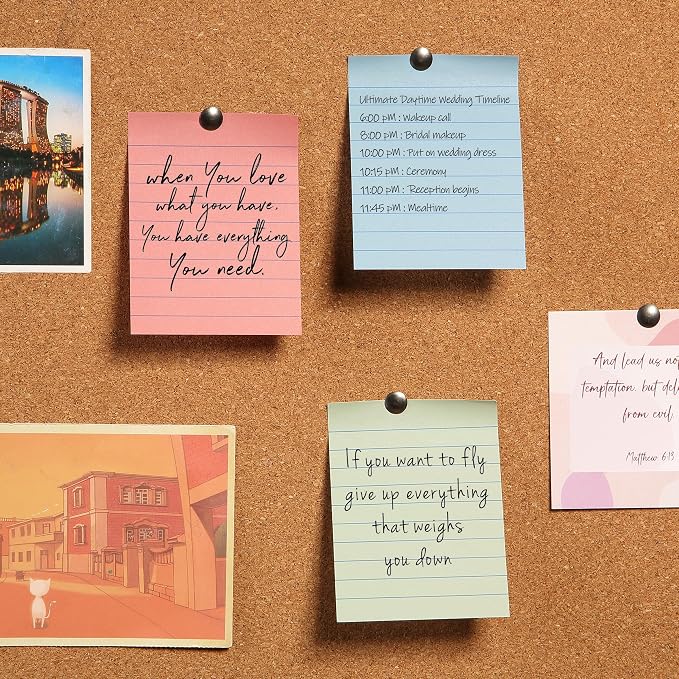 when You love
what you have.
You have everything
You need.
Ultimate Daytime Wedding Timeline
6:00 pM : Wakeup call
8:00 pM : Bridal makeup
10:00 pM : Put on wedding dress
10:15 pM : Ceremony
11:00 pM : Reception begins
11:45 pM : Mealtime
And lead us
temptation, but
from evil.
Matthew 6:13
If you want to fly
give up everything
that weighs
you down